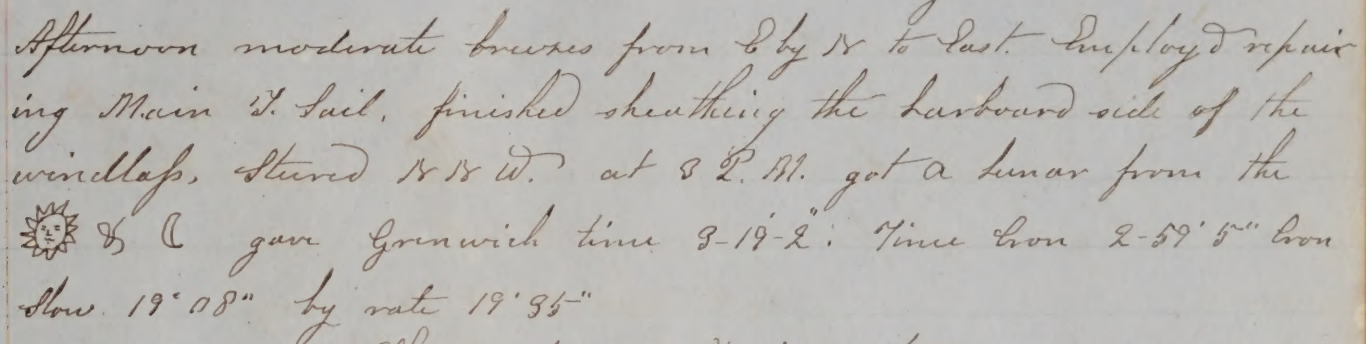 Afternoon moderate breezes from E by N to East. Employ'd repair
ing Main T. Sail, finished sheathing the Larboard side of the
windlass, Steered N N W. at 3 P.M. got a Lunar from the
☉ & ☾ gave Grenwich time 3-19'-2". Time Cron 2-59' 5" Cron
Slow 19' 08" by rate 19' 35"